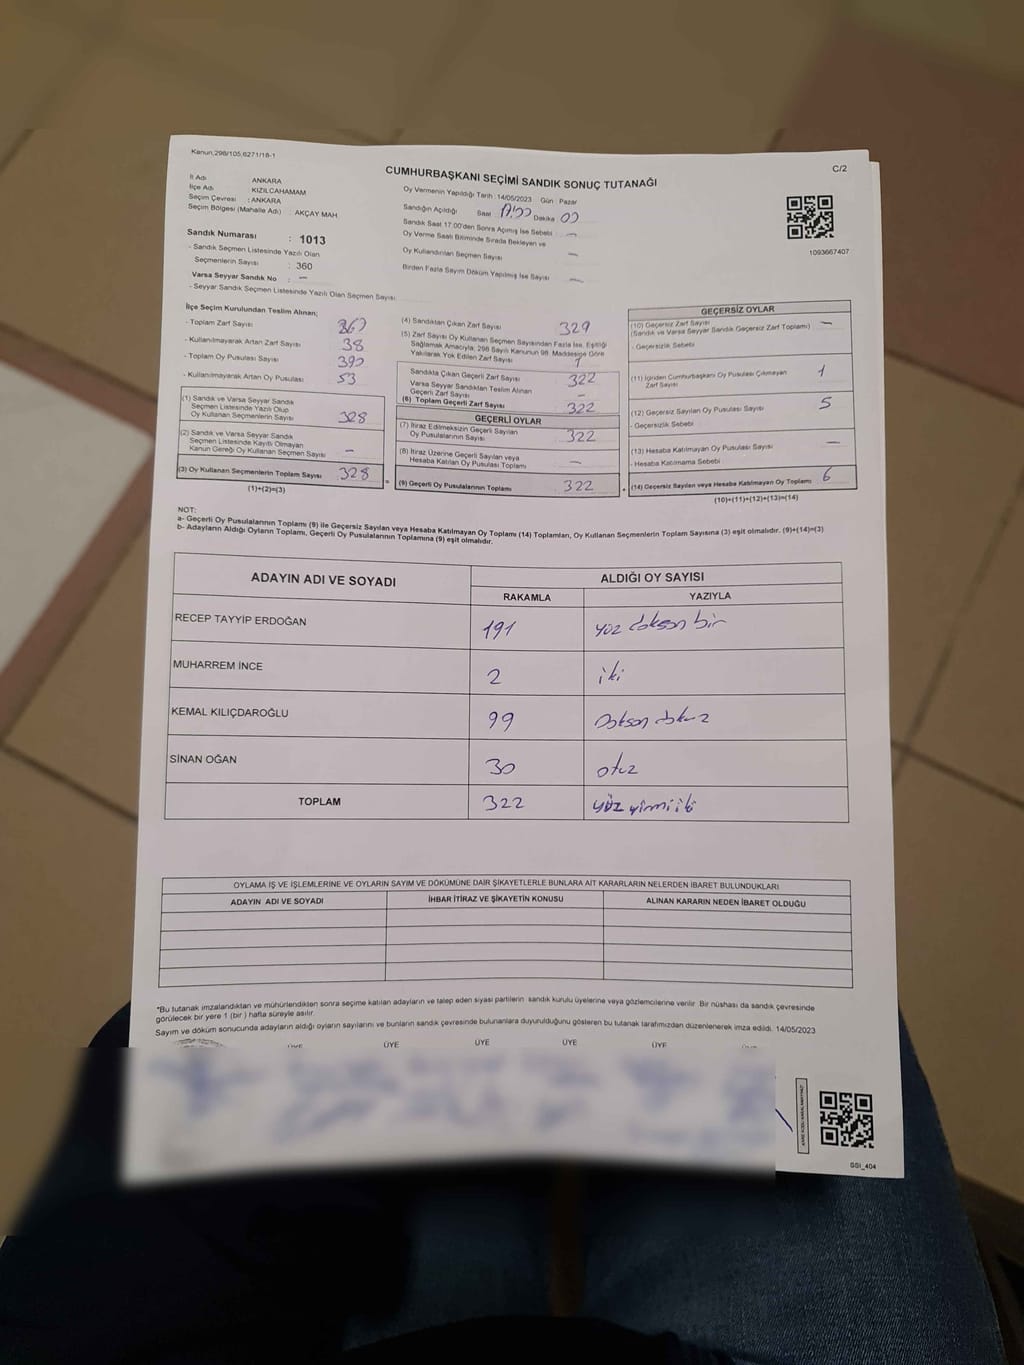 Kanun;298/105,6271/18-1
C/2
CUMHURBAŞKANI SEÇİMİ SANDIK SONUÇ TUTANAĞI
İl Adı ANKARA
İlçe Adı KIZILCAHAMAM
Seçim Çevresi : ANKARA
Seçim Bölgesi (Mahalle Adı) : AKÇAY MAH.
Oy Vermenin Yapıldığı Tarih :14/05/2023 Gün : Pazar
Sandığın Açıldığı Saat Dakika
Sandık Saat 17.00'den Sonra Açılmış İse Sebebi —
Oy Verme Saati Bitiminde Sırada Bekleyen ve
Oy Kullandırılan Seçmen Sayısı —
Birden Fazla Sayım Döküm Yapılmış İse Sayısı —
1093667407
Sandık Numarası : 1013
- Sandık Seçmen Listesinde Yazılı Olan
Seçmenlerin Sayısı : 360
Varsa Seyyar Sandık No : —
- Seyyar Sandık Seçmen Listesinde Yazılı Olan Seçmen Sayısı:
İlçe Seçim Kurulundan Teslim Alınan;
- Toplam Zarf Sayısı
- Kullanılmayarak Artan Zarf Sayısı 38
- Toplam Oy Pusulası Sayısı
- Kullanılmayarak Artan Oy Pusulası 53
(1) Sandık ve Varsa Seyyar Sandık
Seçmen Listesinde Yazılı Olup
Oy Kullanan Seçmenlerin Sayısı 328
(2) Sandık ve Varsa Seyyar Sandık
Seçmen Listesinde Kayıtlı Olmayan
Kanun Gereği Oy Kullanan Seçmen Sayısı —
(3) Oy Kullanan Seçmenlerin Toplam Sayısı 328
(1)+(2)=(3)
(4) Sandıktan Çıkan Zarf Sayısı 329
(5) Zarf Sayısı Oy Kullanan Seçmen Sayısından Fazla İse, Eşitliği
Sağlamak Amacıyla; 298 Sayılı Kanunun 98. Maddesine Göre
Yakılarak Yok Edilen Zarf Sayısı 1
Sandıkta Çıkan Geçerli Zarf Sayısı 322
Varsa Seyyar Sandıktan Teslim Alınan
Geçerli Zarf Sayısı —
(6) Toplam Geçerli Zarf Sayısı 322
GEÇERLİ OYLAR
(7) İtiraz Edilmeksizin Geçerli Sayılan
Oy Pusulalarının Sayısı 322
(8) İtiraz Üzerine Geçerli Sayılan veya
Hesaba Katılan Oy Pusulası Toplamı —
(9) Geçerli Oy Pusulalarının Toplamı 322
GEÇERSİZ OYLAR
(10) Geçersiz Zarf Sayısı —
(Sandık ve Varsa Seyyar Sandık Geçersiz Zarf Toplamı)
- Geçersizlik Sebebi
(11) İçinden Cumhurbaşkanı Oy Pusulası Çıkmayan 1
Zarf Sayısı
(12) Geçersiz Sayılan Oy Pusulası Sayısı 5
- Geçersizlik Sebebi
(13) Hesaba Katılmayan Oy Pusulası Sayısı —
- Hesaba Katılmama Sebebi
(14) Geçersiz Sayılan veya Hesaba Katılmayan Oy Toplamı 6
(10)+(11)+(12)+(13)=(14)
NOT:
a- Geçerli Oy Pusulalarının Toplamı (9) ile Geçersiz Sayılan veya Hesaba Katılmayan Oy Toplamı (14) Toplamları, Oy Kullanan Seçmenlerin Toplam Sayısına (3) eşit olmalıdır. (9)+(14)=(3)
b- Adayların Aldığı Oyların Toplamı, Geçerli Oy Pusulalarının Toplamına (9) eşit olmalıdır.
ADAYIN ADI VE SOYADI ALDIĞI OY SAYISI
RAKAMLA YAZIYLA
RECEP TAYYİP ERDOĞAN 191 yüz doksan bir
MUHARREM İNCE 2 iki
KEMAL KILIÇDAROĞLU 99 Doksan dokuz
SİNAN OĞAN 30 otuz
TOPLAM 322 yüz yirmi iki
OYLAMA İŞ VE İŞLEMLERİNE VE OYLARIN SAYIM VE DÖKÜMÜNE DAİR ŞİKAYETLERLE BUNLARA AİT KARARLARIN NELERDEN İBARET BULUNDUKLARI
ADAYIN ADI VE SOYADI İHBAR İTİRAZ VE ŞİKAYETİN KONUSU ALINAN KARARIN NEDEN İBARET OLDUĞU
*Bu tutanak imzalandıktan ve mühürlendikten sonra seçime katılan adayların ve talep eden siyasi partilerin sandık kurulu üyelerine veya gözlemcilerine verilir. Bir nüshası da sandık çevresinde
görülecek bir yere 1 (bir) hafta süreyle asılır.
Sayım ve döküm sonucunda adayların aldığı oyların sayılarını ve bunların sandık çevresinde bulunanlara duyurulduğunu gösteren bu tutanak tarafımızdan düzenlenerek imza edildi. 14/05/2023
ÜYE ÜYE ÜYE ÜYE ÜYE ÜYE
GSI_404